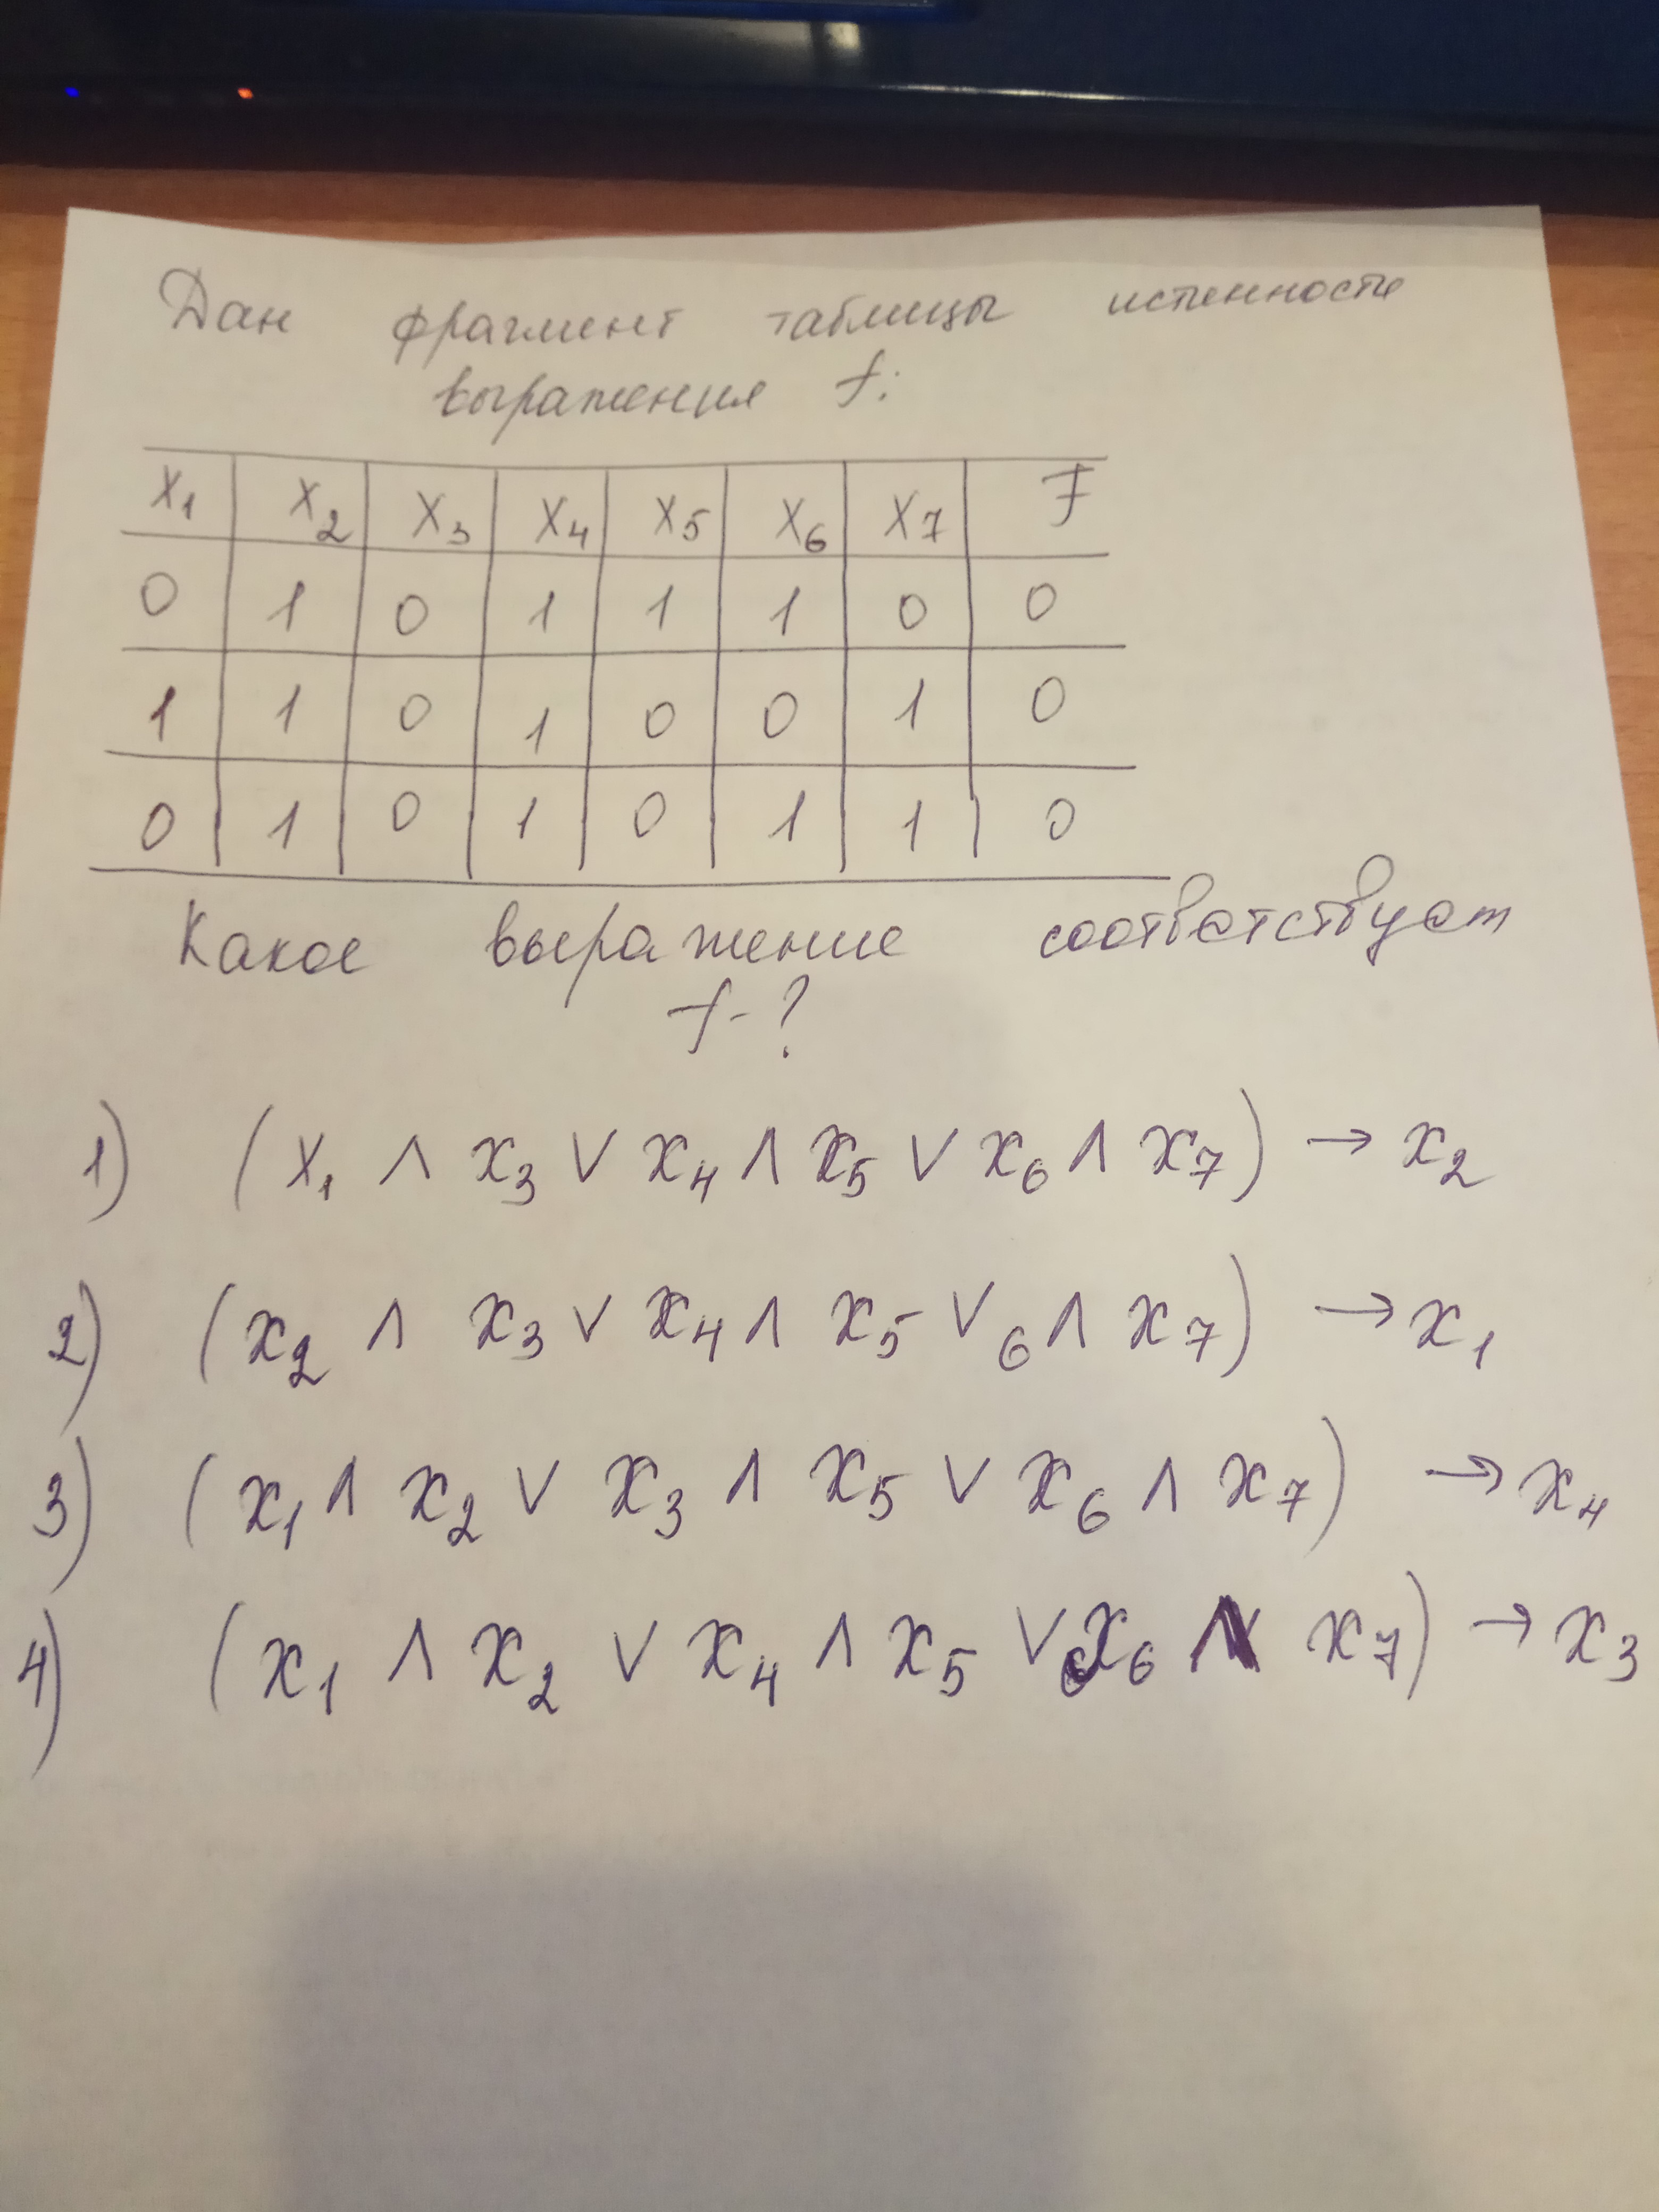 Дан фрагмент таблицы истенности
выражения f:
x₁ x₂ x₃ x₄ x₅ x₆ x₇ F
0 1 0 1 1 1 0 0
1 1 0 1 0 0 1 0
0 1 0 1 0 1 1 0
Какое выражение соответствует
f-?
1) (x₁ ∧ x₃ ∨ x₄ ∧ x₅ ∨ x₆ ∧ x₇) → x₂
2) (x₂ ∧ x₃ ∨ x₄ ∧ x₅ ∨ ₆ ∧ x₇) → x₁
3) (x₁ ∧ x₂ ∨ x₃ ∧ x₅ ∨ x₆ ∧ x₇) → x₄
4) (x₁ ∧ x₂ ∨ x₄ ∧ x₅ ∨ x₆ ∧ x₇) → x₃